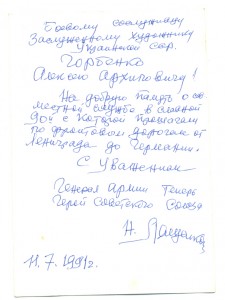 Боевому сослуживцу
Заслуженному художнику
Украинской ССР.
Горбенко
Алексею Архиповичу!
На добрую память о со
местной службе в славной
90й с которой прошагали
по фронтовым дорогам от
Ленинграда до Германии.
С Уважением
Генерал Армии Теперь
Герой Советского Союза
Н. Лященко
11.7.1991г.